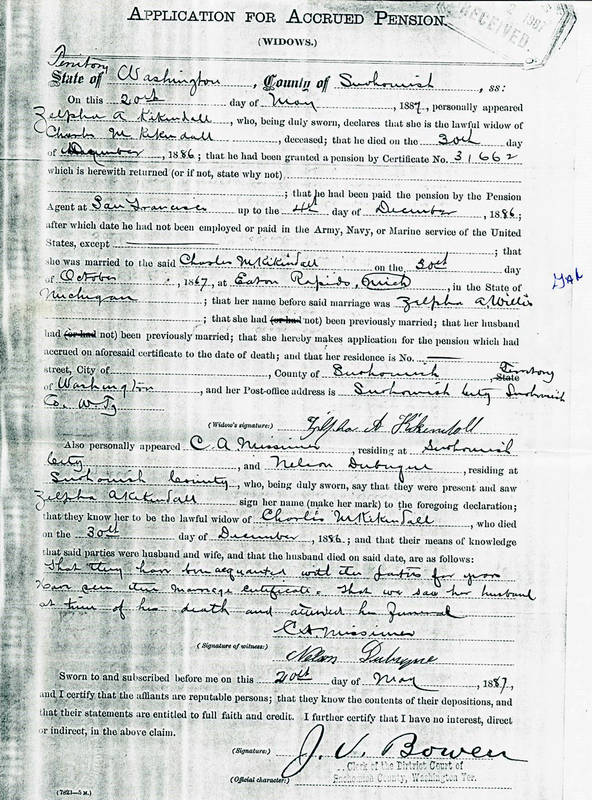 APPLICATION FOR ACCRUED PENSION.
(WIDOWS.)
RECEIVED
1887
Territory
State of Washington, County of Snohomish, ss:
On this 20th day of May, 1887, personally appeared
Zelpha A Kikendall, who, being duly sworn, declares that she is the lawful widow of
Charles M Kikendall, deceased; that he died on the 30th day
of December, 1886; that he had been granted a pension by Certificate No. 31,662
which is herewith returned (or if not, state why not)
; that he had been paid the pension by the Pension
Agent at San Francisco up to the 4th day of December, 1886;
after which date he had not been employed or paid in the Army, Navy, or Marine service of the United
States, except ; that
she was married to the said Charles M Kikindall on the 30th day
of October, 1867, at Eaton Rapids, Mich, in the State of
Michigan ; that her name before said marriage was Zelpha A Willis
; that she had (or had not) been previously married; that her husband
had (or had not) been previously married; that she hereby makes application for the pension which had
accrued on aforesaid certificate to the date of death; and that her residence is No.
street, City of , County of Snohomish, State Territory
of Washington, and her Post-office address is Snohomish City Snohomish
Co. W. Ty
(Widow's signature:) Zelpha A Kikendall
Also personally appeared C. A Missimer, residing at Snohomish
City, and Nelson Dubuque, residing at
Snohomish County, who, being duly sworn, say that they were present and saw
Zelpha A Kikendall sign her name (make her mark) to the foregoing declaration;
that they know her to be the lawful widow of Charles M Kikendall, who died
on the 30th day of December, 1886; and that their means of knowledge
that said parties were husband and wife, and that the husband died on said date, are as follows:
That they have been acquainted with the parties for years
Have seen their marriage certificate. That we saw her husband
at time of his death and attened his Funeral
C A Missimer
(Signature of witness:)
Nelson Dubuque
Sworn to and subscribed before me on this 20th day of May, 1887,
and I certify that the affiants are reputable persons; that they know the contents of their depositions, and
that their statements are entitled to full faith and credit. I further certify that I have no interest, direct
or indirect, in the above claim.
(Signature:) J. V. Bowen
Clerk of the District Court of
(Official character:) Snohomish County, Washington Ter.
(7823—5 M.)